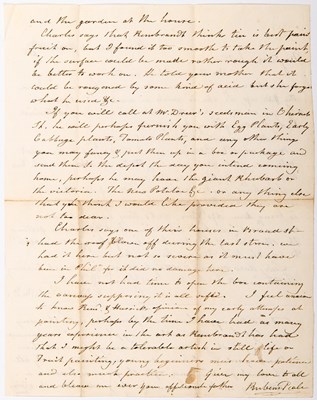 and the garden at the house.
Charles says that Rembrandt thinks tin is best to paint
fruit on, but I found it too smooth to take the paint
if the surface could be made rather rough it would
be better to work on. He told your mother that it
could be roughed by some kind of acid but she forgot
what he used &c.
If you will call at Mr. Drew's seedsman in Chesnut
St. he will perhaps furnish you with Egg Plants, Early
Cabbage plants, Tomato Plants and any other things
you may fancy & put them up in a box or package and
send them to the depot the day you intend coming
home, perhaps he may have the Giant Rhubarb or
the victoria. The New Potatoe &c. or any thing else
that you think I would like provided they are
not too dear.
Charles says one of their houses in Broad St.
had the roof blown off during the last storm, we
had it here but not so severe as it must have
been in Phil. for it did no damage here.
I have not had time to open the box containing
the varnish supposing it all safe. I feel anxious
to hear Rem. & Herrick opinion of my early attempts at
painting, perhaps by the time I have had as many
years experience in the art as Rembrandt has had
that I might be a tolerable artist in still life or
Fruit painting, young beginners must have patience
and also much practice. Give my love to all
and believe me ever your affectionate father Rubens Peale